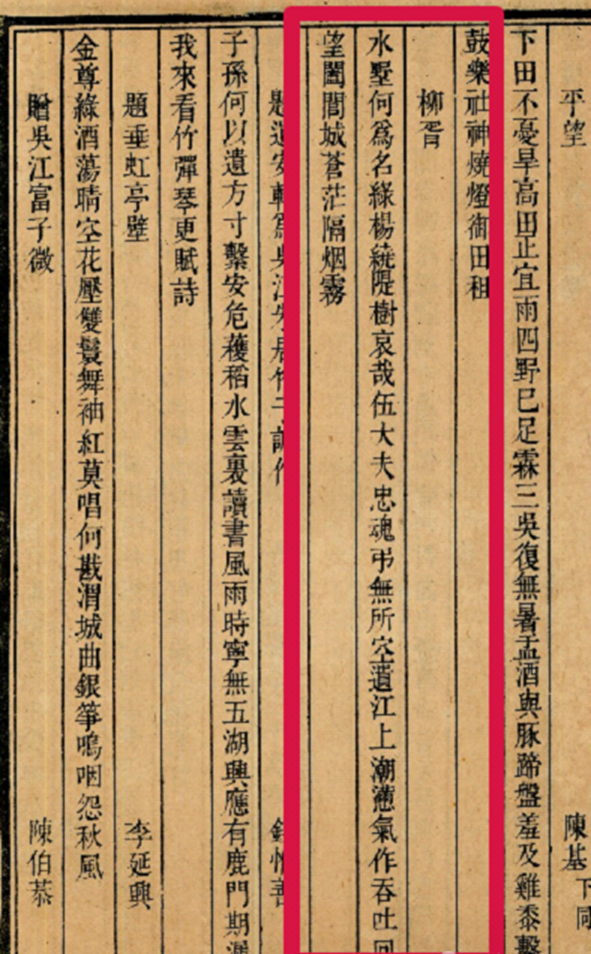 平望 陳基 下同
下田不憂旱高田正宜雨四野已足霖三吳復無暑盂酒與豚蹄盤羞及雞黍
鼓樂社神燒燈御田租
柳胥
水墅何爲名綠楊繞隄樹哀哉伍大夫忠魂弔無所空遺江上潮憑氣作吞吐回
望闔閭城蒼茫隔烟霧
題遺安軒爲吳江 居竹 錢惟善
子孫何以遺方寸繫安危穫稻水雲裏讀書風雨時寧無五湖興應有鹿門期
我來看竹彈琴更賦詩
題垂虹亭壁 李延興
金尊綠酒蕩晴空花壓雙鬟舞袖紅莫唱何戡渭城曲銀箏嗚咽怨秋風
贈吳江富子微 陳伯恭